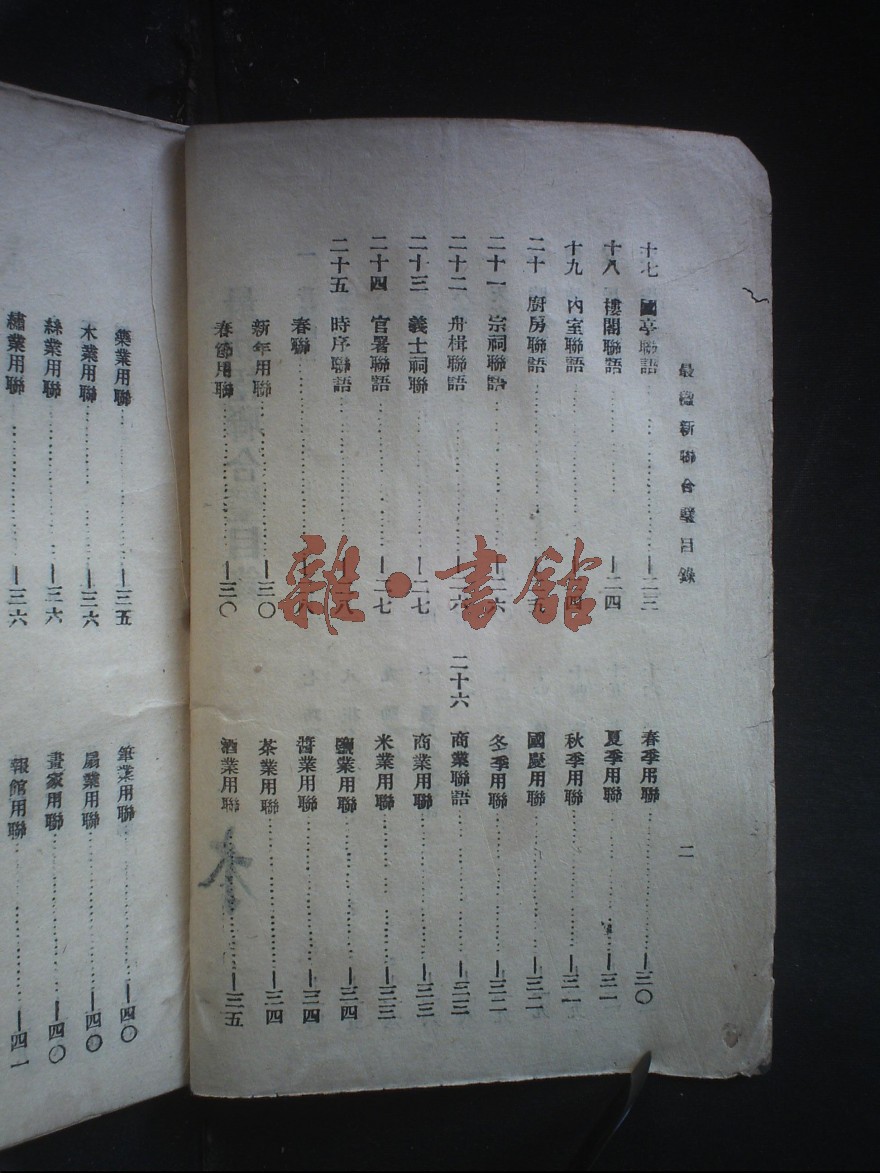 最 新聯合璧目錄
二
十七 園亭聯語……一二三
十八 樓閣聯語……一二四
十九 內室聯語……一二四
二十 廚房聯語……一二五
二十一 宗祠聯語……一二六
二十二 舟楫聯語……一二六
二十三 義士祠聯……一二七
二十四 官署聯語……一二七
二十五 時序聯語……一二八
春聯……一二八
新年用聯……一三〇
春節用聯……一三〇
春季用聯……一三〇
夏季用聯……一三一
秋季用聯……一三一
國慶用聯……一三二
冬季用聯……一三二
二十六 商業聯語……一三三
商業用聯……一三三
米業用聯……一三三
鹽業用聯……一三四
醬業用聯……一三四
茶業用聯……一三四
酒業用聯……一三五
藥業用聯……一三五
木業用聯……一三六
絲業用聯……一三六
繡業用聯……一三六
筆業用聯……一四〇
扇業用聯……一四〇
畫家用聯……一四〇
報館用聯……一四一
雜·書館